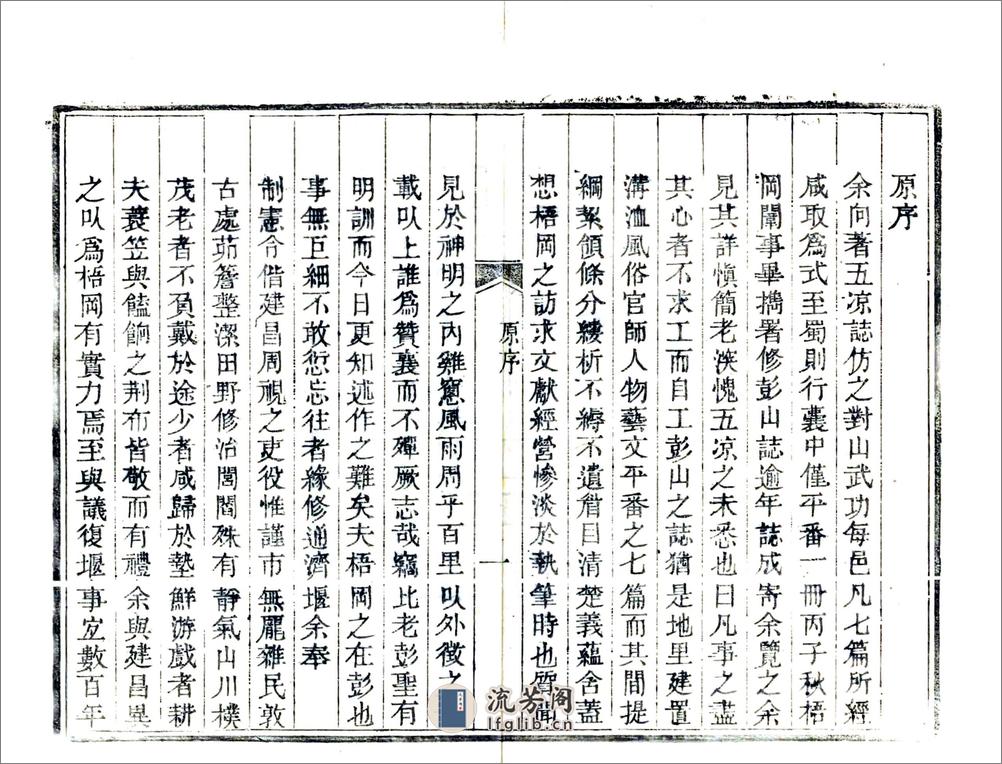 原序
余向著五凉誌仿之對山武功每邑凡七篇所經
咸取爲式至蜀則行囊中僅平番一冊丙子秋梧
岡闈事畢搗署修彭山誌逾年誌成寄余覽之余
見其詳愼簡老浹愧五凉之未悉也曰凡事之盡
其心者不求工而自工彭山之誌猶是地里建置
溝洫風俗官師人物藝文平番之七篇而其間提
綱絜領條分縷析不縟不遺眉目清楚義蘊含蓋
想梧岡之訪求文獻經營慘淡於執筆時也質聞
原序
一
見於神明之內雞窻風雨周乎百里以外徵之
載以上誰爲贊襄而不殫厥志哉竊比老彭聖有
明訓而今日更知述作之難矣夫梧岡之在彭也
事無巨細不敢愆忘往者緣修通濟堰余奉
制憲令偕建昌周視之吏役惟謹市無厖雜民敦
古處茆簷整潔田野修治閭閻殊有靜氣山川樸
茂老者不負戴於途少者咸歸於塾鮮游戲者耕
夫蓑笠與饁餉之荆布皆敬而有禮余與建昌異
之以爲梧岡有實力焉至與議復堰事宜數百年
流芳阁
lfglib.cn